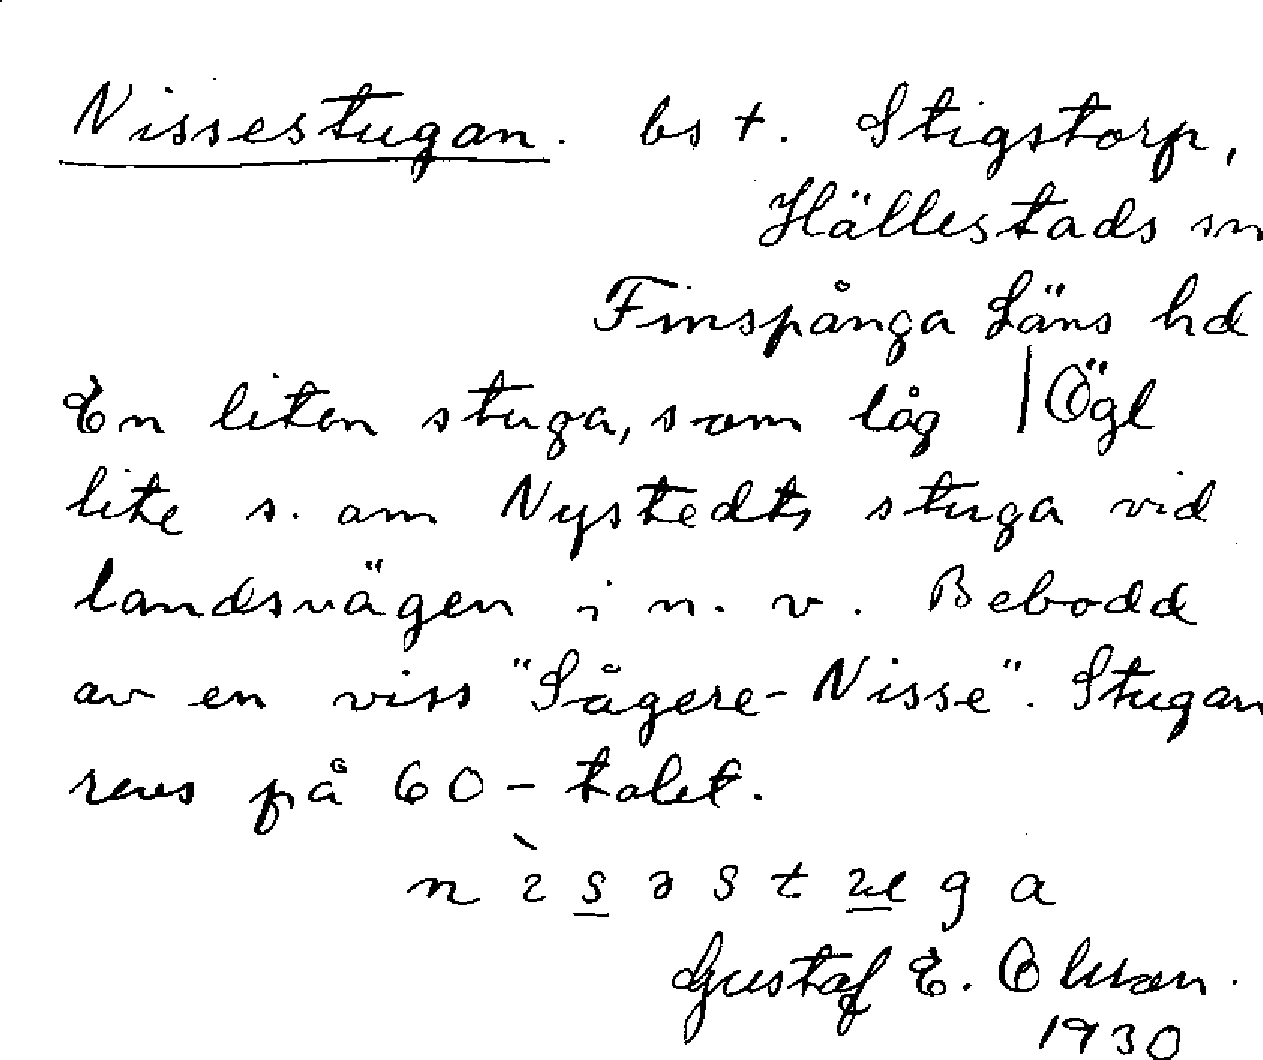 Nissestugan. bs †. Stigstorp,
Hällestads sn
Finspånga Läns hd
En liten stuga, som låg | Ögl
lite s. om Nystedts stuga vid
landsvägen i n. v. Bebodd
av en viss "Sågere-Nisse". Stugan
revs på 60-talet.
nìsəstuga
Gustaf E. Olsson.
1930